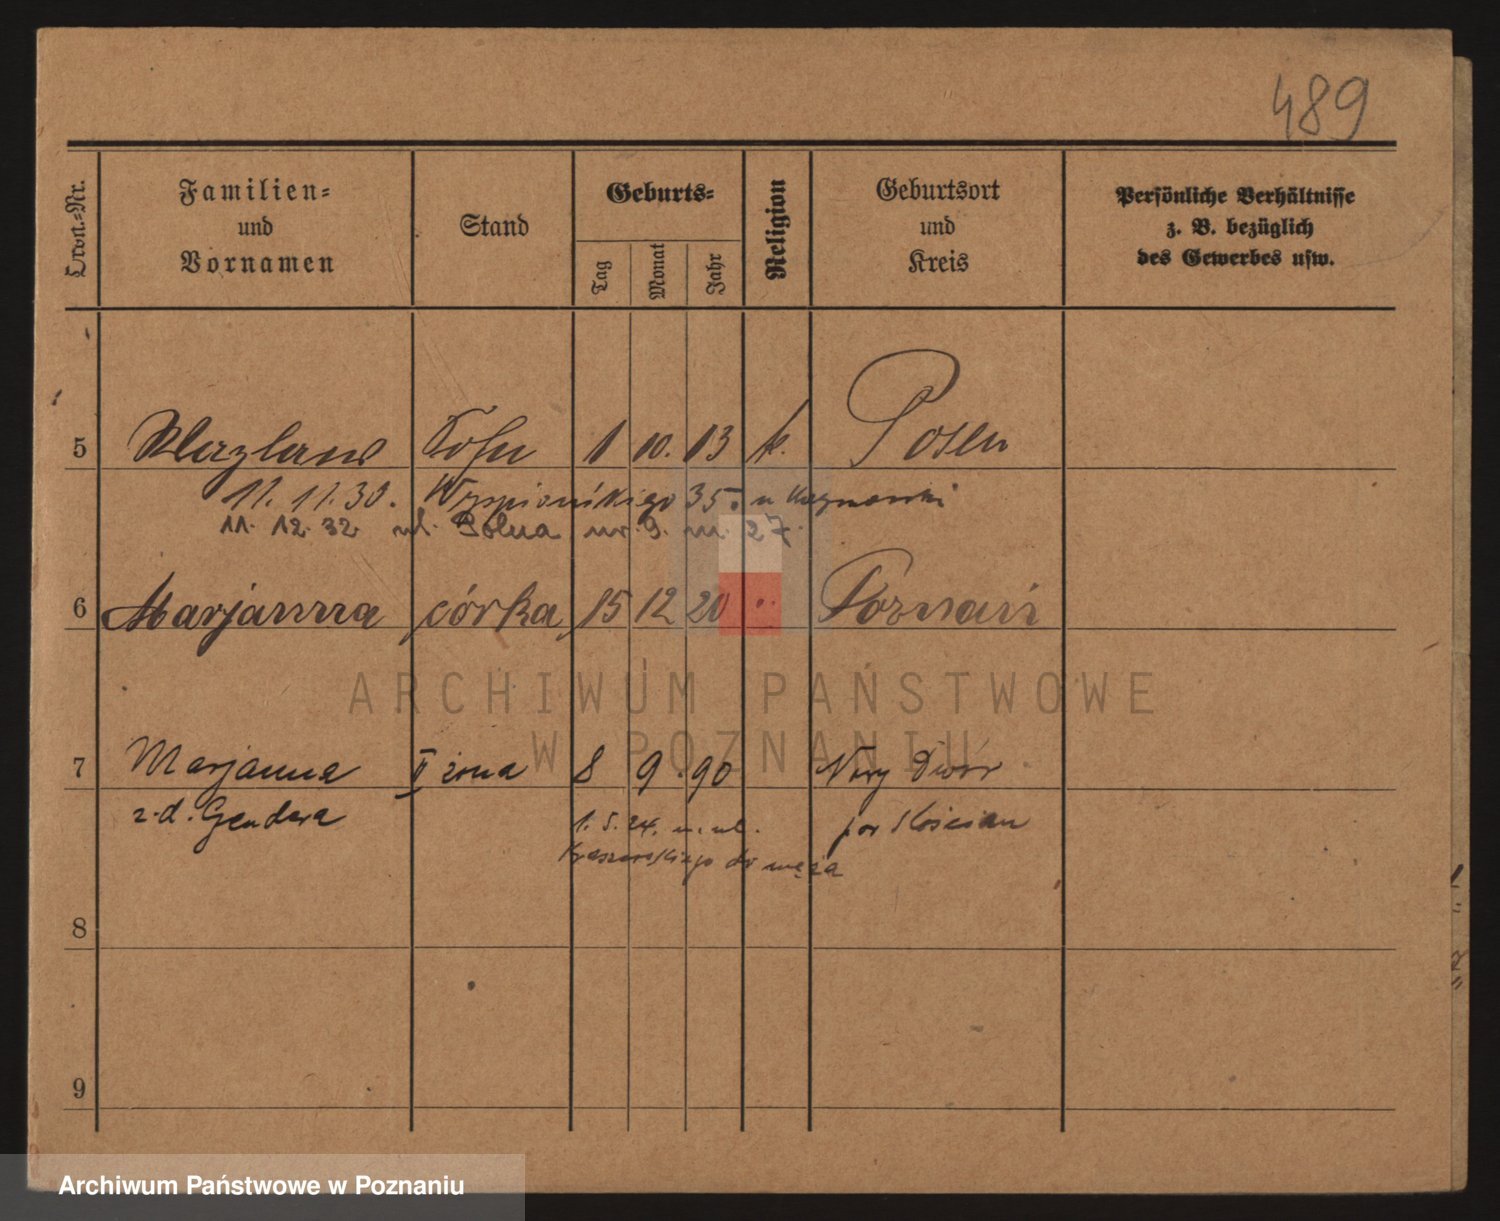 489
Ordn.-Nr.
Familien-
und
Vornamen
Stand
Geburts-
Tag
Monat
Jahr
Religion
Geburtsort
und
Kreis
Persönliche Verhältnisse
z. B. bezüglich
des Gewerbes usw.
5 Wazlaus Sohn 1 10. 13 k. Posen
11. 11. 30. Wyspiańskiego 35. u
11. 12. 32 ul. Polna nr. 9. m. 27.
6 Marjanna córka 15 12 20 " Poznań
ARCHIWUM PAŃSTWOWE
W POZNANIU
7 Marjanna II żona 8 9. 90 Nowy Dwór
z. d. Gendera pow Kościan
1. 5. 24. ul.
Kraszewskiego do męża
8
9
Archiwum Państwowe w Poznaniu